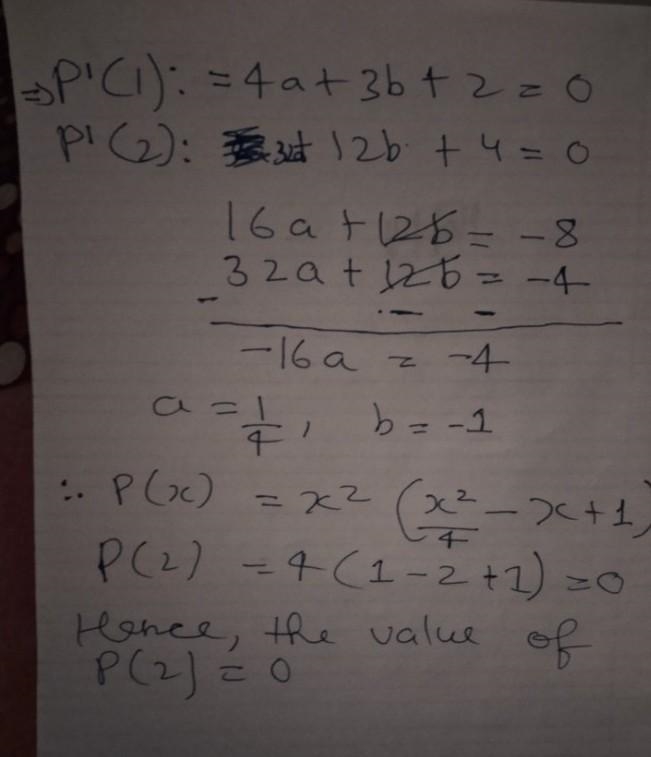 ⇒ P'(1): = 4a + 3b + 2 = 0
P'(2): 32a + 12b + 4 = 0
16a + 12b = -8
32a + 12b = -4
- - -
-16a = -4
a = 1/4, b = -1
∴ P(x) = x² (x²/4 - x + 1)
P(2) = 4(1 - 2 + 1) = 0
Hence, the value of
P(2) = 0